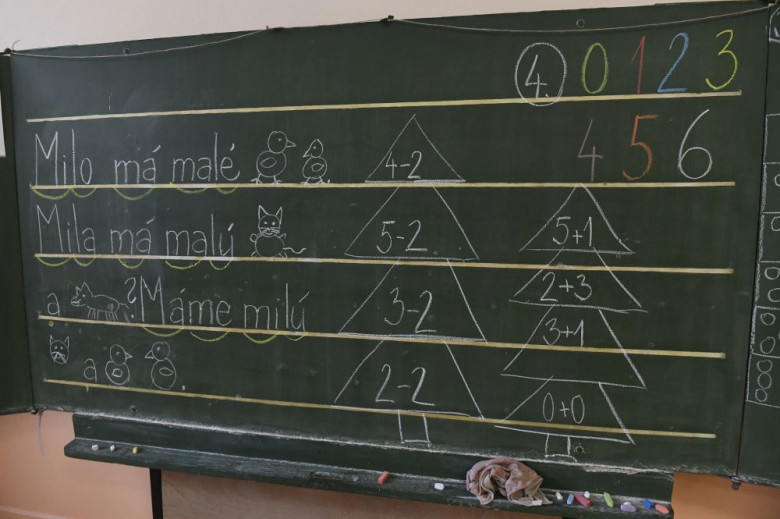 4. 0 1 2 3
4 5 6
Milo má malé
Mila má malý
a ? Máme milý
a
4-2
5-2
3-2
2-2
5+1
2+3
3+1
0+0